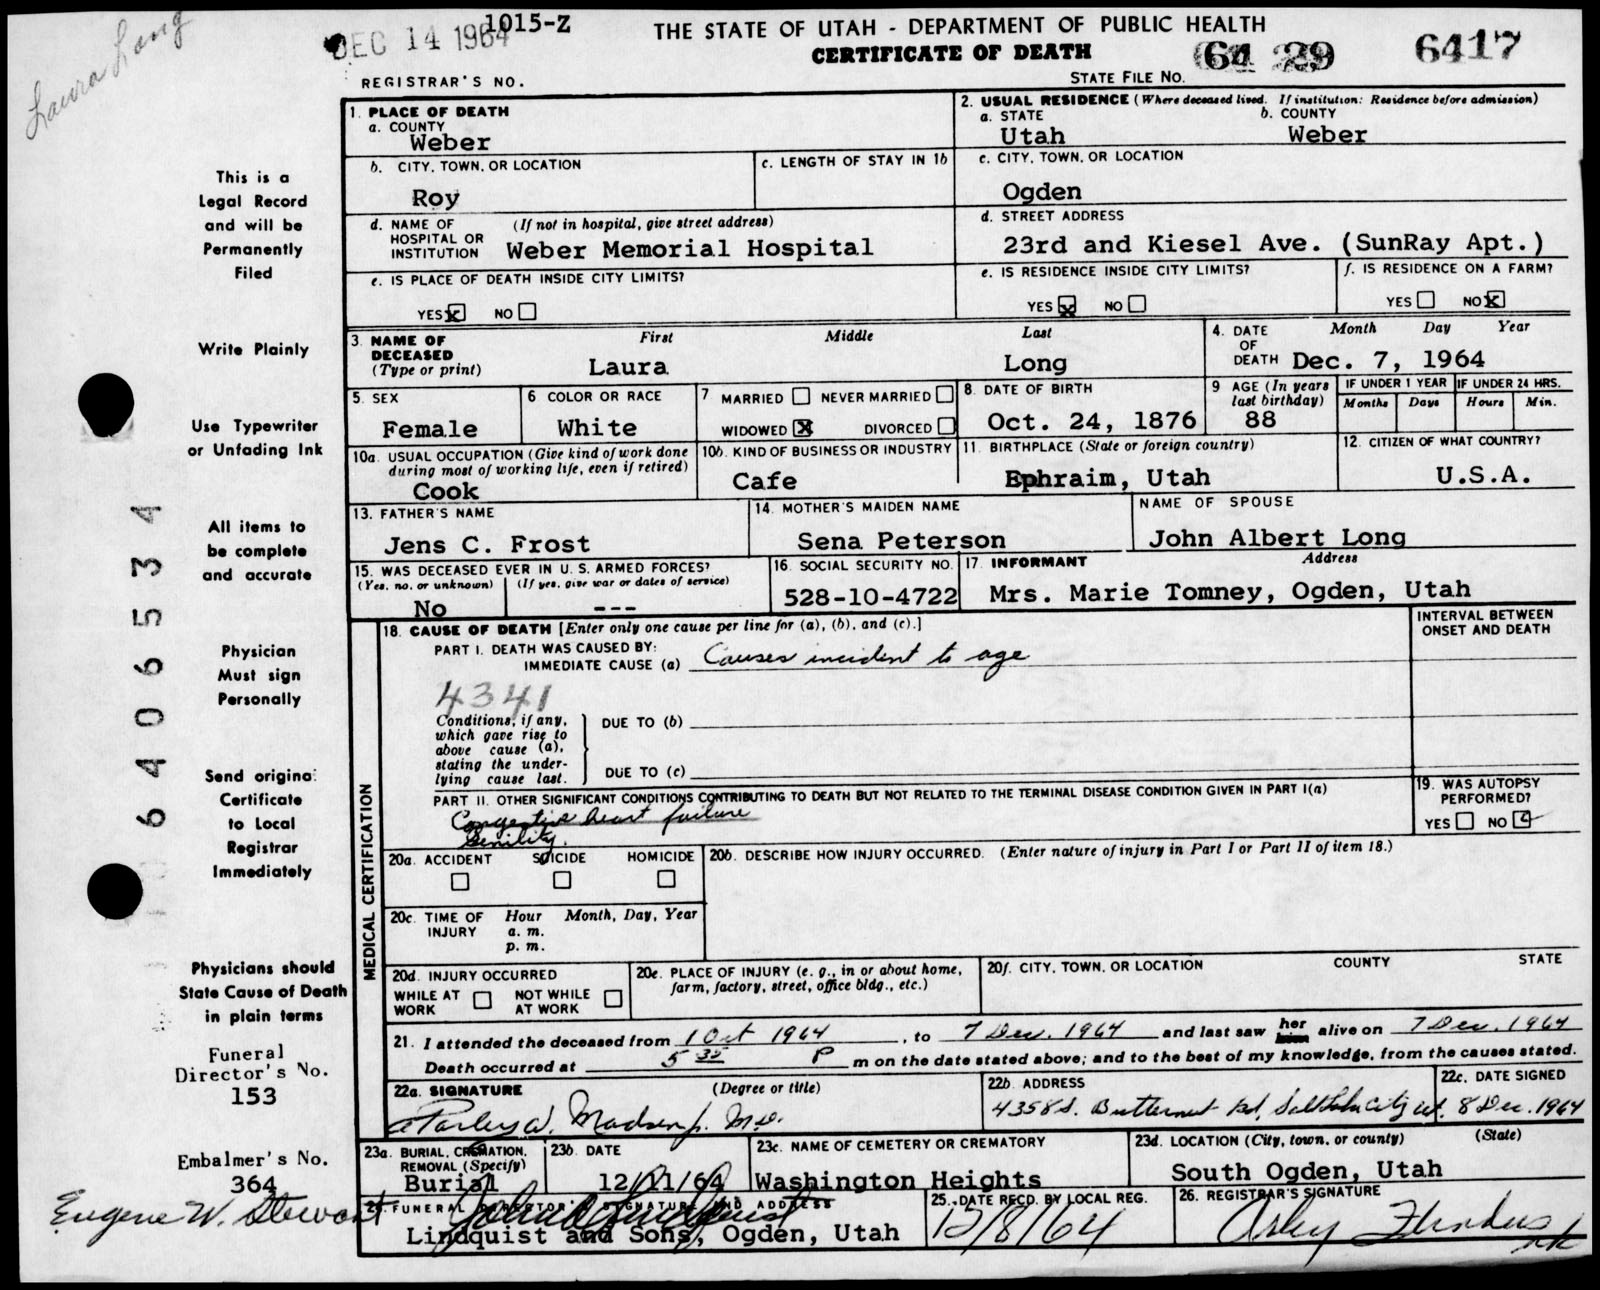 Laura Long
DEC 14 1964
1015-Z
THE STATE OF UTAH - DEPARTMENT OF PUBLIC HEALTH
CERTIFICATE OF DEATH
64 29
6417
REGISTRAR'S NO.
STATE FILE NO.
This is a
Legal Record
and will be
Permanently
Filed
Write Plainly
Use Typewriter
or Unfading Ink
All items to
be complete
and accurate
Physician
Must sign
Personally
Send original
Certificate
to Local
Registrar
Immediately
Physicians should
State Cause of Death
in plain terms
Funeral
Director's No.
153
Embalmer's No.
364
Eugene W. Stewart
6406534
1. PLACE OF DEATH
a. COUNTY
Weber
2. USUAL RESIDENCE (Where deceased lived. If institution: Residence before admission)
a. STATE b. COUNTY
Utah Weber
b. CITY, TOWN, OR LOCATION
Roy
c. LENGTH OF STAY IN 1b
c. CITY, TOWN, OR LOCATION
Ogden
d. NAME OF (If not in hospital, give street address)
HOSPITAL OR
INSTITUTION Weber Memorial Hospital
d. STREET ADDRESS
23rd and Kiesel Ave. (SunRay Apt.)
e. IS PLACE OF DEATH INSIDE CITY LIMITS?
YES NO
e. IS RESIDENCE INSIDE CITY LIMITS?
YES NO
f. IS RESIDENCE ON A FARM?
YES NO
3. NAME OF First Middle Last
DECEASED
(Type or print) Laura Long
4. DATE Month Day Year
OF
DEATH Dec. 7, 1964
5. SEX
Female
6 COLOR OR RACE
White
7 MARRIED NEVER MARRIED
WIDOWED DIVORCED
8. DATE OF BIRTH
Oct. 24, 1876
9 AGE (In years
last birthday)
88
IF UNDER 1 YEAR IF UNDER 24 HRS.
Months Days Hours Min.
10a. USUAL OCCUPATION (Give kind of work done
during most of working life, even if retired)
Cook
10b. KIND OF BUSINESS OR INDUSTRY
Cafe
11 BIRTHPLACE (State or foreign country)
Ephraim, Utah
12. CITIZEN OF WHAT COUNTRY?
U.S.A.
13. FATHER'S NAME
Jens C. Frost
14. MOTHER'S MAIDEN NAME
Sena Peterson
NAME OF SPOUSE
John Albert Long
15. WAS DECEASED EVER IN U. S. ARMED FORCES?
(Yes, no, or unknown) (If yes, give war or dates of service)
No ---
16. SOCIAL SECURITY NO.
528-10-4722
17. INFORMANT Address
Mrs. Marie Tomney, Ogden, Utah
MEDICAL CERTIFICATION
18. CAUSE OF DEATH [Enter only one cause per line for (a), (b), and (c).]
INTERVAL BETWEEN
ONSET AND DEATH
PART I. DEATH WAS CAUSED BY:
IMMEDIATE CAUSE (a) Causes incident to age
4341
Conditions, if any,
which gave rise to
above cause (a),
stating the under-
lying cause last.
DUE TO (b)
DUE TO (c)
PART II. OTHER SIGNIFICANT CONDITIONS CONTRIBUTING TO DEATH BUT NOT RELATED TO THE TERMINAL DISEASE CONDITION GIVEN IN PART I(a)
Congestive heart failure
Senility.
19. WAS AUTOPSY
PERFORMED?
YES NO
20a. ACCIDENT SUICIDE HOMICIDE
20b. DESCRIBE HOW INJURY OCCURRED. (Enter nature of injury in Part I or Part II of item 18.)
20c. TIME OF Hour Month, Day, Year
INJURY a. m.
p. m.
20d. INJURY OCCURRED
WHILE AT NOT WHILE
WORK AT WORK
20e. PLACE OF INJURY (e. g., in or about home,
farm, factory, street, office bldg., etc.)
20f. CITY, TOWN, OR LOCATION COUNTY STATE
21. I attended the deceased from 1 Oct 1964, to 7 Dec. 1964 and last saw her him alive on 7 Dec. 1964
Death occurred at 5 35 P m on the date stated above; and to the best of my knowledge, from the causes stated.
22a. SIGNATURE (Degree or title)
Parley W. Madsen Jr. M.D.
22b. ADDRESS
4358 S. Butternut Rd, Salt Lake City Ut.
22c. DATE SIGNED
8 Dec. 1964
23a. BURIAL, CREMATION,
REMOVAL (Specify)
Burial
23b. DATE
12/11/64
23c. NAME OF CEMETERY OR CREMATORY
Washington Heights
23d. LOCATION (City, town, or county) (State)
South Ogden, Utah
24. FUNERAL DIRECTOR'S SIGNATURE AND ADDRESS
Lindquist and Sons, Ogden, Utah
25. DATE RECD. BY LOCAL REG.
12/8/64
26. REGISTRAR'S SIGNATURE